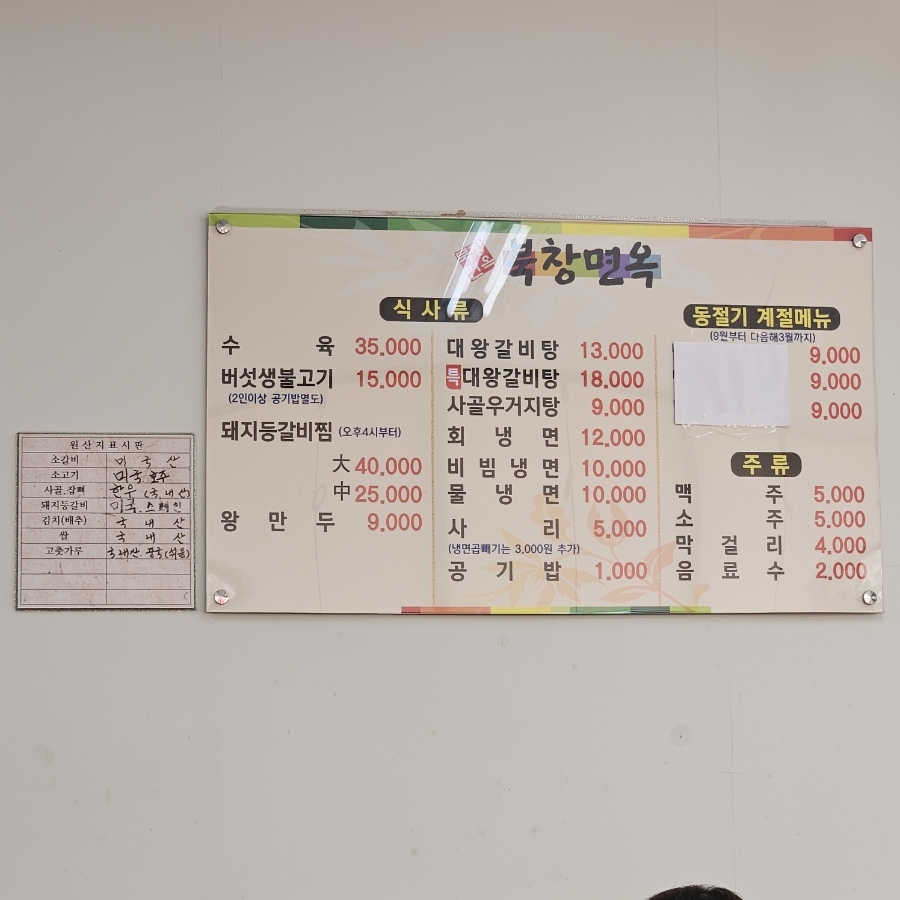 북창면옥
식사류
수육 35.000
버섯생불고기 15.000
(2인이상 공기밥별도)
돼지등갈비찜 (오후4시부터)
大 40.000
中 25.000
왕만두 9.000
대왕갈비탕 13.000
특대왕갈비탕 18.000
사골우거지탕 9.000
회냉면 12.000
비빔냉면 10.000
물냉면 10.000
사리 5.000
(냉면곱빼기는 3,000원 추가)
공기밥 1.000
동절기 계절메뉴
(9월부터 다음해3월까지)
9.000
9.000
9.000
주류
맥주 5.000
소주 5.000
막걸리 4.000
음료수 2.000
원산지표시판
소갈비 미국산
소고기 미국 호주
사골.잡뼈 한우 (국내산)
돼지등갈비 미국.스페인
김치(배추) 국내산
쌀 국내산
고춧가루 국내산. 중국(섞음)